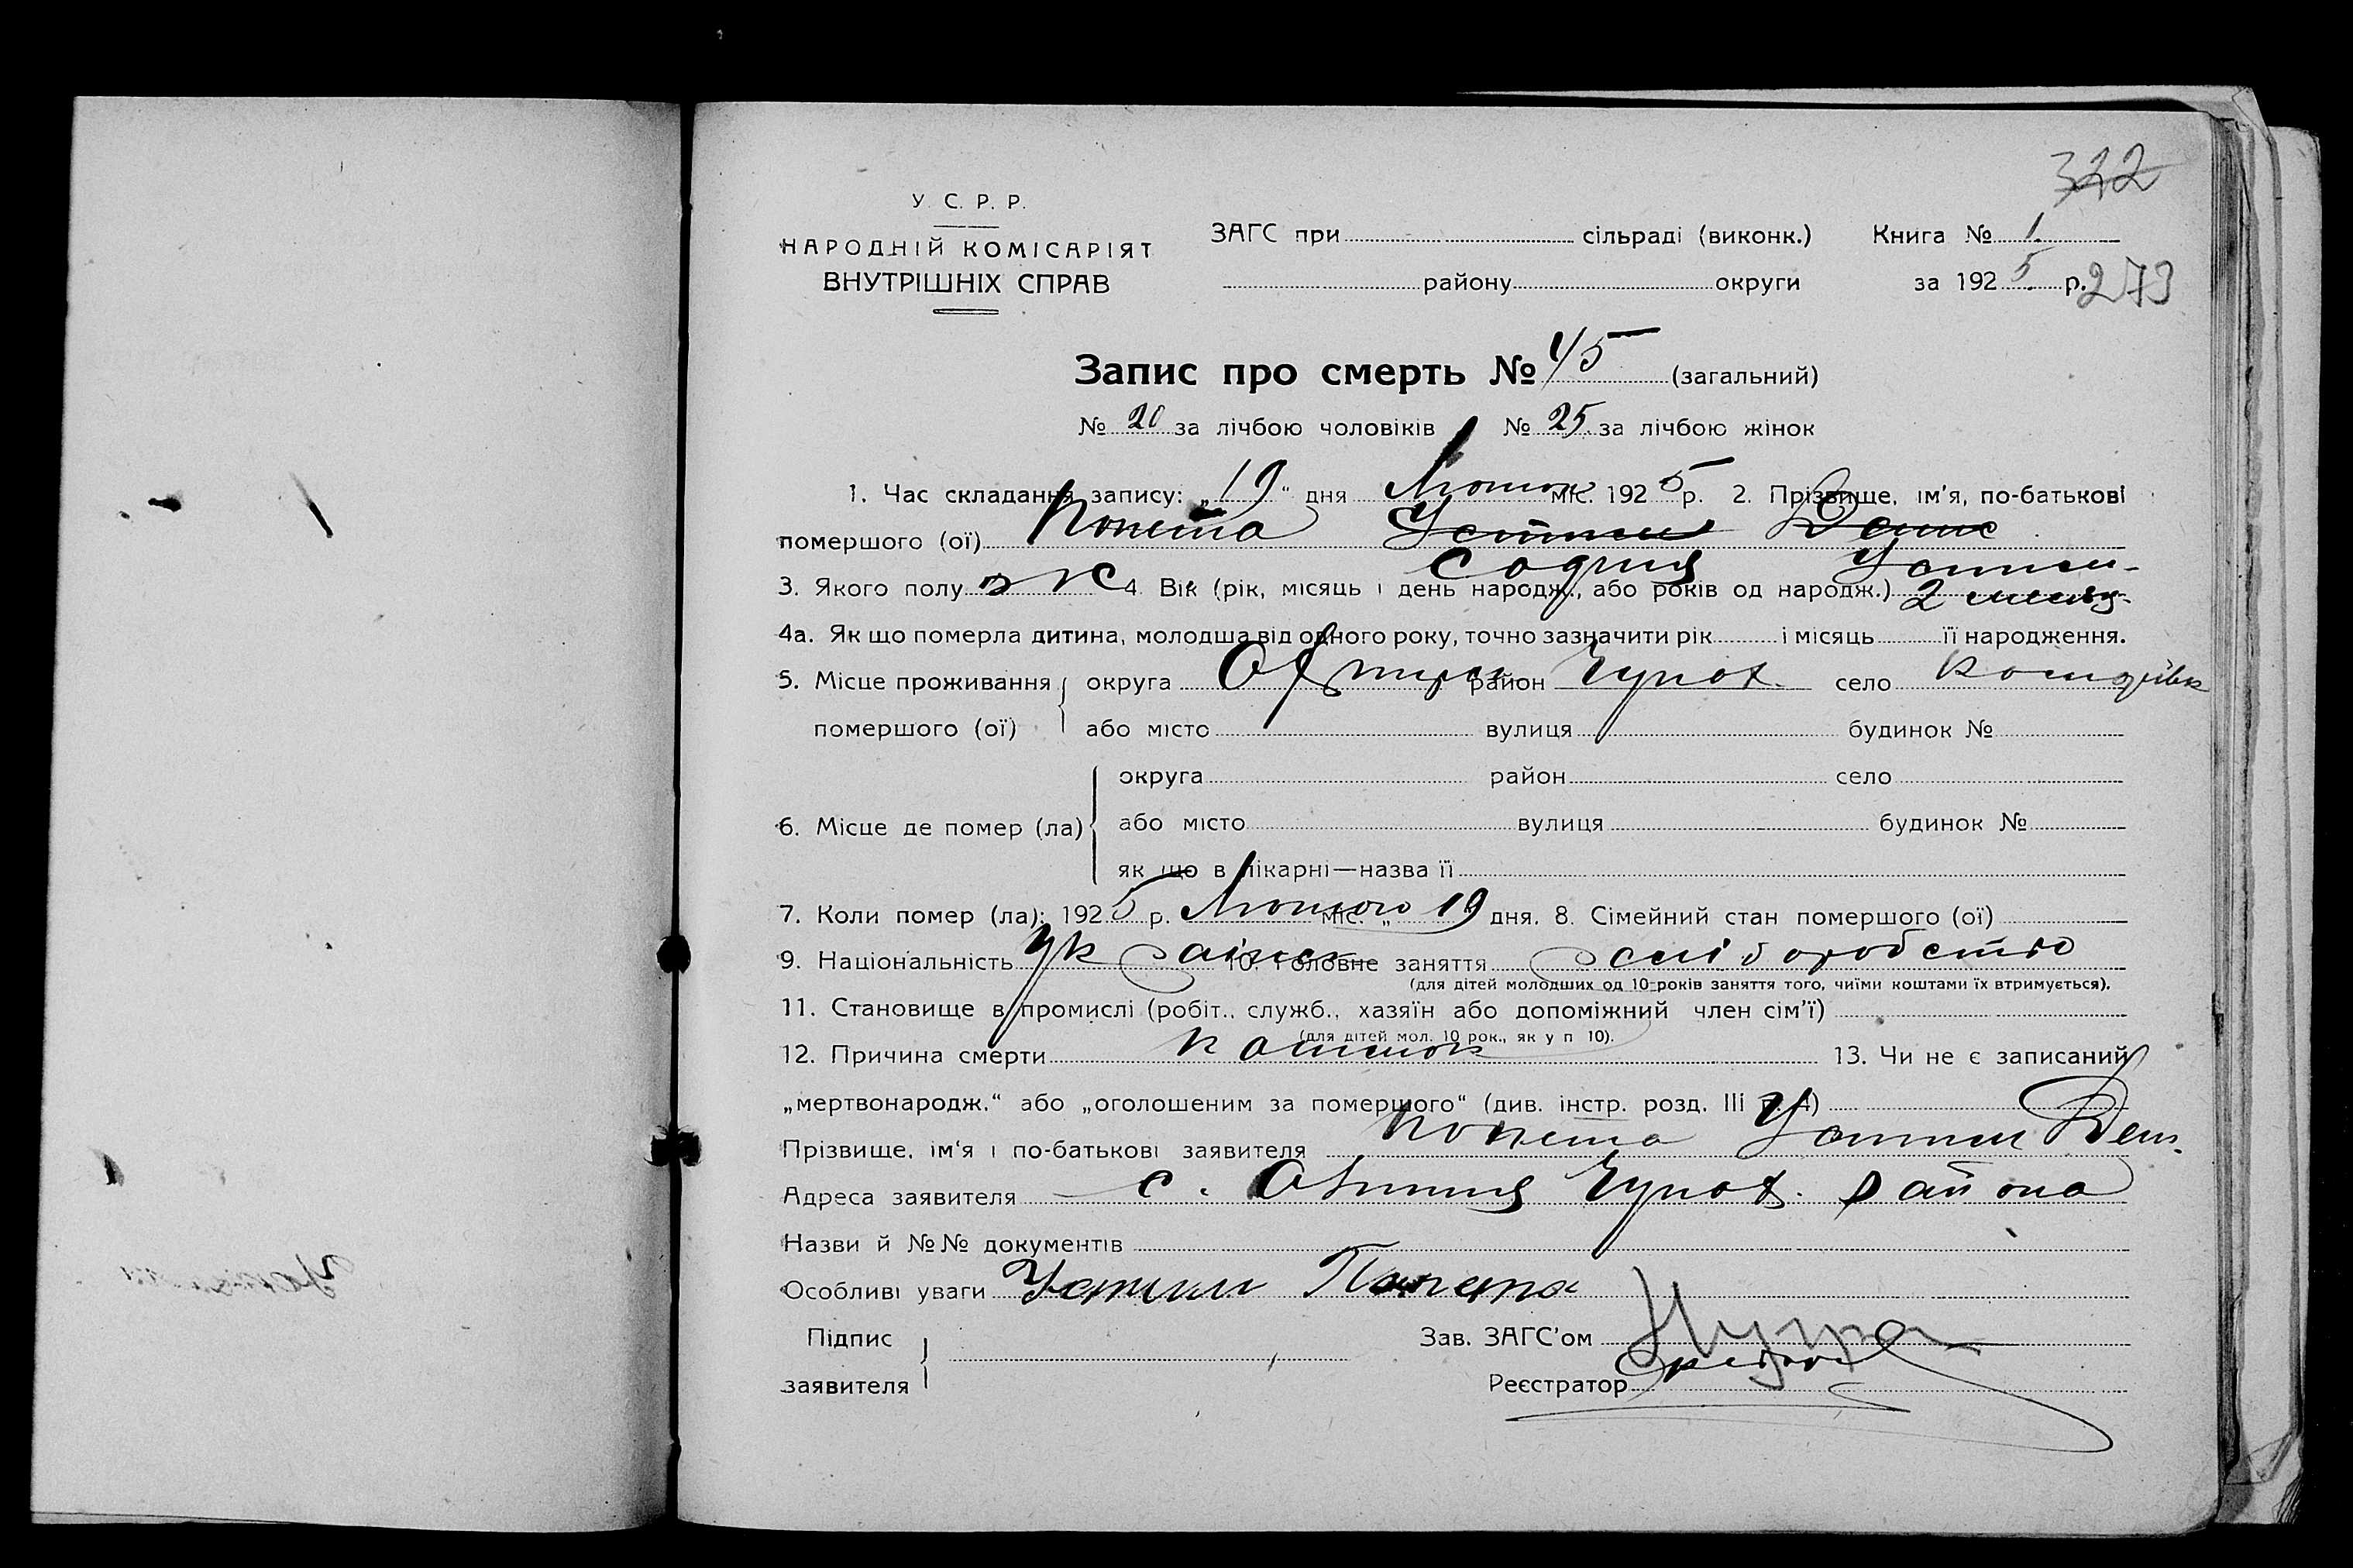 322
У. С. Р. Р.
НАРОДНІЙ КОМІСАРІЯТ
ВНУТРІШНІХ СПРАВ
ЗАГС при сільраді (виконк.)
району округи
Книга № 1.
за 1925 р. 273
Запис про смерть № 45 (загальний)
№ 20 за лічбою чоловіків № 25 за лічбою жінок
1. Час складання запису: „19“ дня міс. 1925 р. 2. Прізвище, ім'я, по-батькові
помершого (ої)
София Устин-
3. Якого полу ж 4. Вік (рік, місяць і день народж., або років од народж.) 2
4а. Як що померла дитина, молодша від одного року, точно зазначити рік і місяць її народження.
5. Місце проживання округа район Чупах. село
помершого (ої) або місто вулиця будинок №
округа район село
6. Місце де помер (ла) або місто вулиця будинок №
як що в лікарні—назва її
7. Коли помер (ла): 1925 р. Лютого міс. „19 дня. 8. Сімейний стан помершого (ої)
9. Національність Украінск 10. Головне заняття
(для дітей молодших од 10-років заняття того, чиїми коштами їх втримується).
11. Становище в промислі (робіт., служб., хазяїн або допоміжний член сім'ї)
(для дітей мол. 10 рок., як у п 10).
12. Причина смерти 13. Чи не є записаний
„мертвонародж.“ або „оголошеним за помершого“ (див. інстр. розд. III п. 4)
Прізвище, ім'я і по-батькові заявителя Устин Ден.
Адреса заявителя с. Чупах. района
Назви й №№ документів
Особливі уваги Устин
Підпис
заявителя
Зав. ЗАГС'ом
Реєстратор